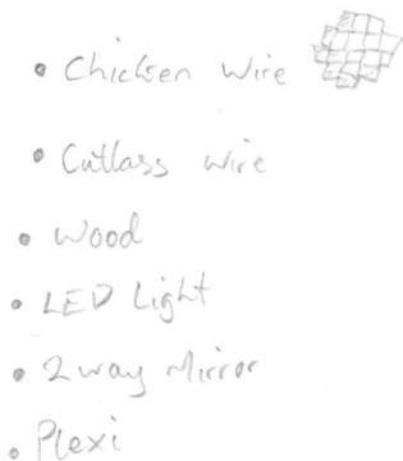 • Chicken Wire
• Cutlass wire
• Wood
• LED Light
• 2way Mirror
• Plexi